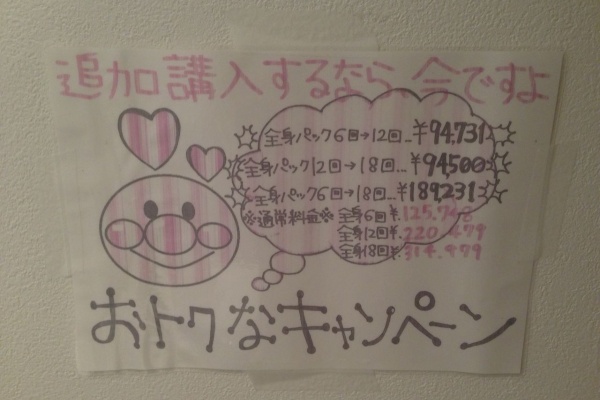 追加講入するなら、今ですよ
全身パック6回→12回…¥94,731
全身パック12回→18回…¥94,500
全身パック6回→18回…¥189,231
※通常料金※ 全身6回¥.125,748
全身12回¥.220,479
全身18回¥.314,979
おトクなキャンペーン